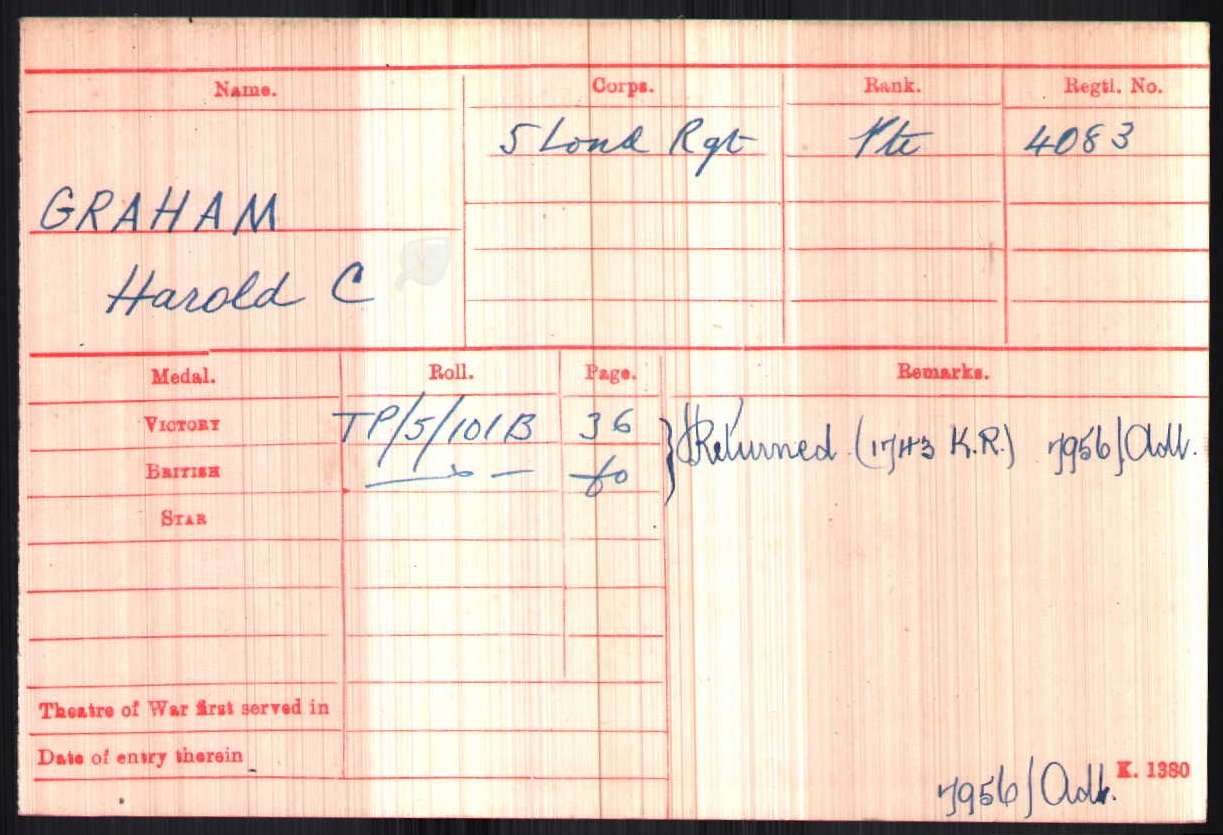 Name. Corps. Rank. Regtl. No.
5 Lond Rgt Pte 4083
GRAHAM
Harold C
Medal. Roll. Page. Remarks.
VICTORY TP/5/101B 36 } Returned (1743 K.R.) 7956/Adt.
BRITISH — do — do
STAR
Theatre of War first served in
Date of entry therein
K. 1380
7956/Adt.